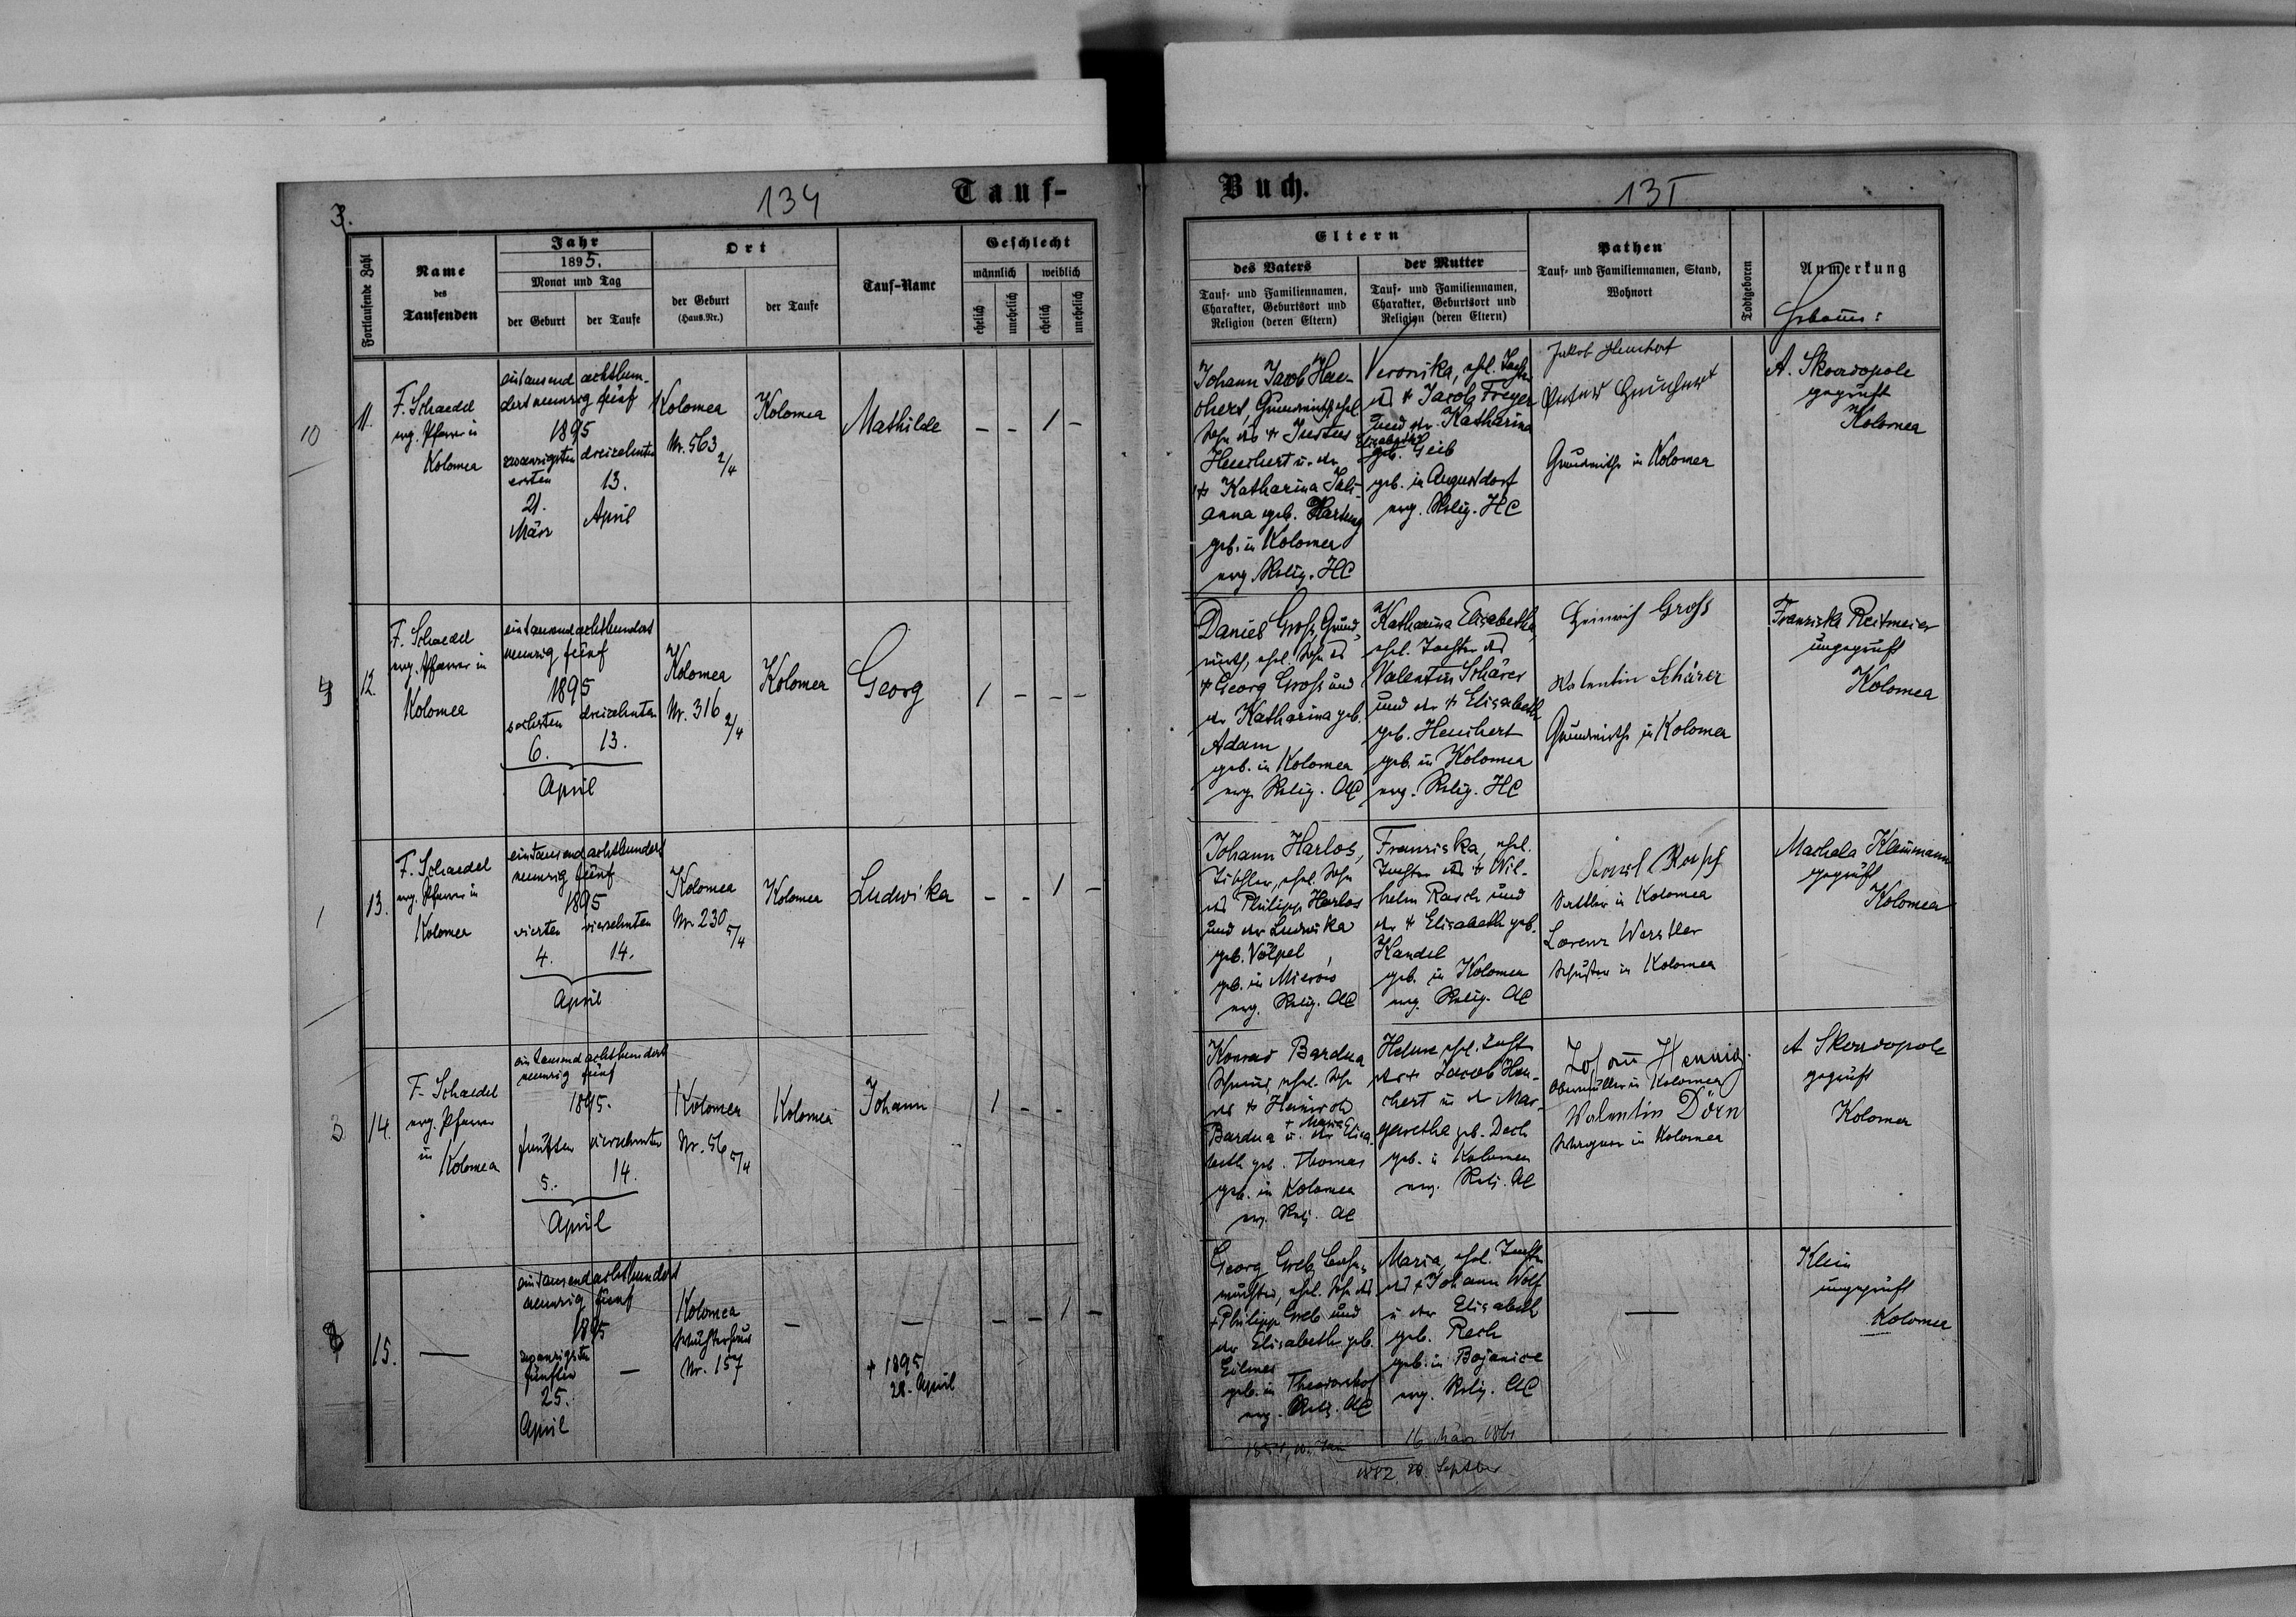 134
Tauf-
3.
Fortlaufende Zahl
Name
des
Taufenden
Jahr
1895.
Monat und Tag
der Geburt
der Taufe
Ort
der Geburt
(Haus-Nr.)
der Taufe
Tauf-Name
Geschlecht
männlich
weiblich
ehelich
unehelich
ehelich
unehelich
10
11.
F. Schaedel
evg. Pfarrer in
Kolomea
eintausend achthun-
dert neunzig fünf
1895
zwanzigsten
ersten
21.
März
dreizehnten
13.
April
Kolomea
Nr. 563
2/4
Kolomea
Mathilde
– – 1 –
12.
F. Schaedel
evg. Pfarrer in
Kolomea
eintausend achthundert
neunzig fünf
1895
sechsten
6.
dreizehnten
13.
April
Kolomea
Nr. 316
2/4
Kolomea
Georg
1 – – –
1
13.
F. Schaedel
evg. Pfarrer in
Kolomea
eintausend achthundert
neunzig fünf
1895
vierten
4.
vierzehnten
14.
April
Kolomea
Nr. 230
5/4
Kolomea
Ludwika
– – 1 –
3
14.
F. Schaedel
evg. Pfarrer
in
Kolomea
eintausend achthundert
neunzig fünf
1895.
fünften
5.
vierzehnten
14.
April
Kolomea
Nr. 56
5/4
Kolomea
Johann
1 – –
15.
—
eintausend achthundert
neunzig fünf
1895
zwanzigsten
fünften
25.
April
—
Kolomea
Nr. 157
–
—
+ 1895
28. April
– – 1 –
Buch.
135
Eltern
des Vaters
Tauf- und Familiennamen,
Charakter, Geburtsort und
Religion (deren Eltern)
der Mutter
Tauf- und Familiennamen,
Charakter, Geburtsort und
Religion (deren Eltern)
Pathen
Tauf- und Familiennamen, Stand,
Wohnort
Todtgeboren
Anmerkung
Johann Jacob Heu-
chert, Grundwirth, ehel.
Sohn des + Justus
Heuchert u. der
+ Katharina Juli-
anna geb. Hartung
geb. in Kolomea
evg. Relig. HC
Veronika, ehel. Tochter
des + Jacob Freyer
und der Katharina
Elisabetha
geb. Geib
geb. in Augustdorf
evg. Relig. HC
Jakob Heuchert
Peter Heuchert
Grundwirthe in Kolomea
A. Skordopole
geprüft
Kolomea
Daniel Gross, Grund-
wirth, ehel. Sohn des
+ Georg Gross und
der Katharina geb.
Adam
geb. in Kolomea
evg. Relig. AC
Katharina Elisabetha,
ehel. Tochter des
Valentin Schärer
und der + Elisabeth
geb. Heuchert
geb. in Kolomea
evg. Relig. HC
Heinrich Gross
Valentin Schärer
Grundwirthe in Kolomea
Franziska Reitmeier
ungeprüft
Kolomea
Johann Harlos,
Tischler, ehel. Sohn
des Philipp Harlos
und der Ludwika
geb. Völpel,
geb. in Mierow
evg. Relig. AC
Franziska, ehel.
Tochter des + Wil-
helm Rasch und
der + Elisabeth geb.
Kandel
geb. in Kolomea
evg. Relig. AC
Sattler in Kolomea
Lorenz Werstler
Schuster in Kolomea
Machela Kleinmann
geprüft
Kolomea
Konrad Bardua
ehel. Sohn
des + Heinrich
+ Maria
Bardua u. der Elisa-
beth geb. Thomas
geb. in Kolomea
evg. Relj. AC
Helene ehel. Tocht.
des + Jacob Heu-
chert u. der Mar-
garetha geb. Dech
geb. in Kolomea
evg. Relj. AC
Johann Hennig
Obermüller in Kolomea
Valentin Dörn
Wagner in Kolomea
A. Skordopole
geprüft
Kolomea
Georg Greb, Bahn-
wächter, ehel. Sohn des
+ Philipp Greb und
der Elisabeth geb.
Eilmes
geb. in Theodorshof
evg. Relg. AC
Maria, ehel. Tochter
des + Johann Wolf
u. der Elisabeth
geb. Rech
geb. in Bojanice
evg. Relig. AC
—
Klein
ungeprüft
Kolomea
16 März 1861
1882. 28. Septber